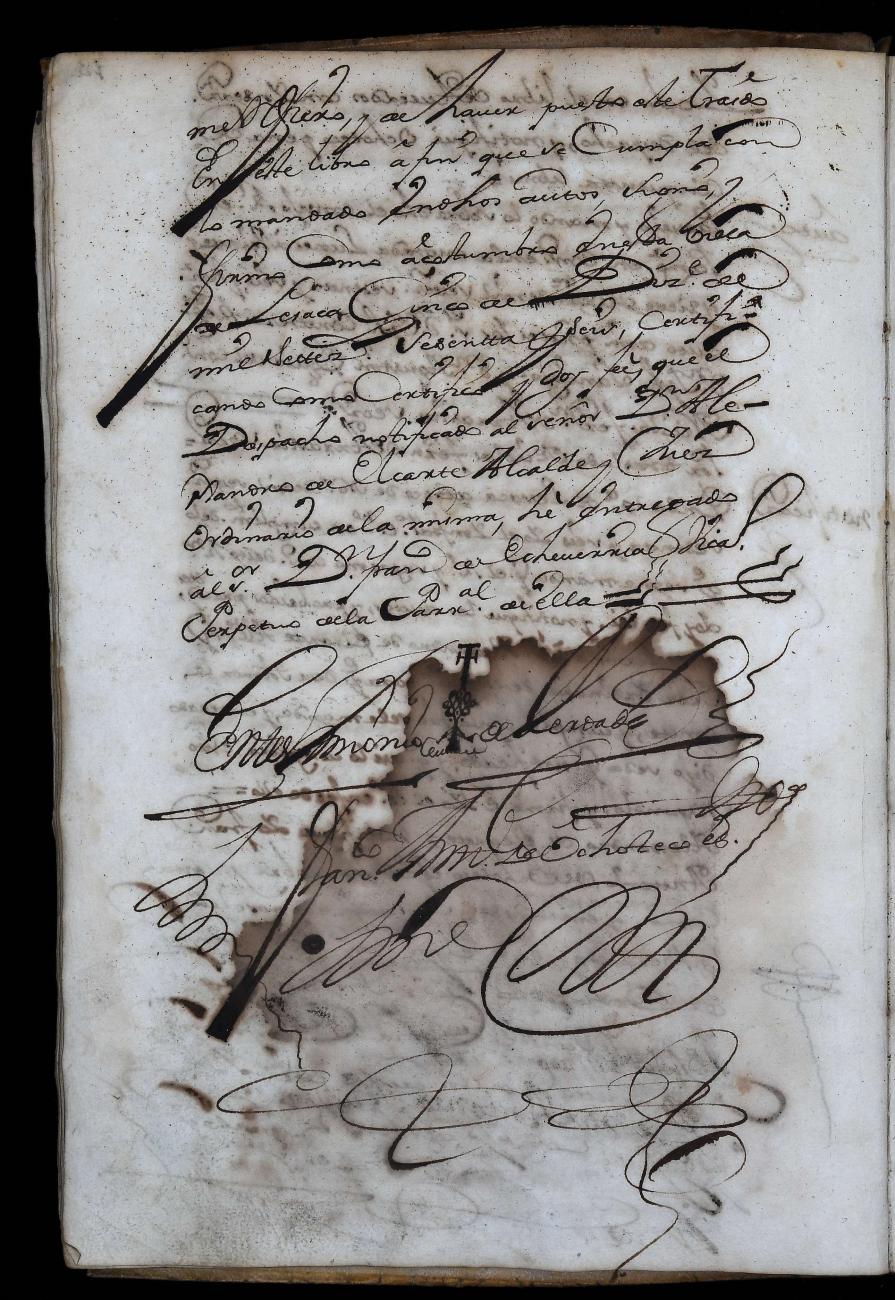 me refiero, y de haver puesto este Traido
En este libro â fin que se Cumpla con
lo mandado En dhos autos, signé, y
firmo Como acostumbro en esta Villa
de Lesaca Cinco de Diz.e de
mil settez.s Sesentta y seis, certifi-
cando como Certifico y doy feé, que el
Despacho notificado al señor D.n Ale-
xandro de Elcarte Alcalde y Juez
Ordinario dela misma, hè entregado
âl s.or D.n Juan de Echeverria Vica.l
Perpetuo dela Parr.al de ella
En testimonio de Verdad
Juan Ant. de Ochoteco es.no